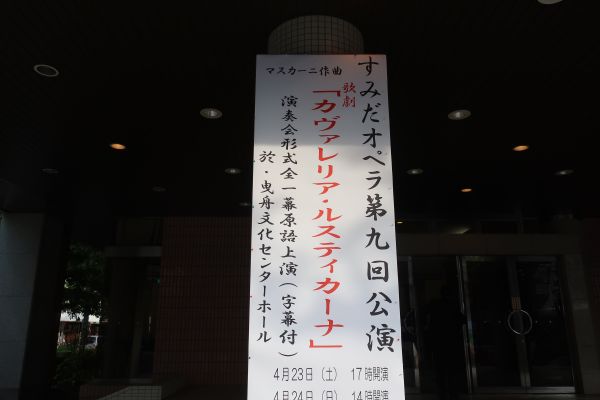 すみだオペラ第九回公演
マスカーニ作曲
歌劇
「カヴァレリア・ルスティカーナ」
演奏会形式全一幕原語上演（字幕付）
於・曳舟文化センターホール
4月23日（土） 17時開演
4月24日（日） 14時開演